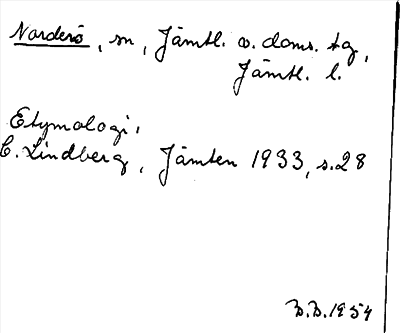 Norderö, sn, Jämtl. v. doms. tg,
Jämtl. l.
Etymologi,
C. Lindberg, Jämten 1933, s. 28
B.B. 1954